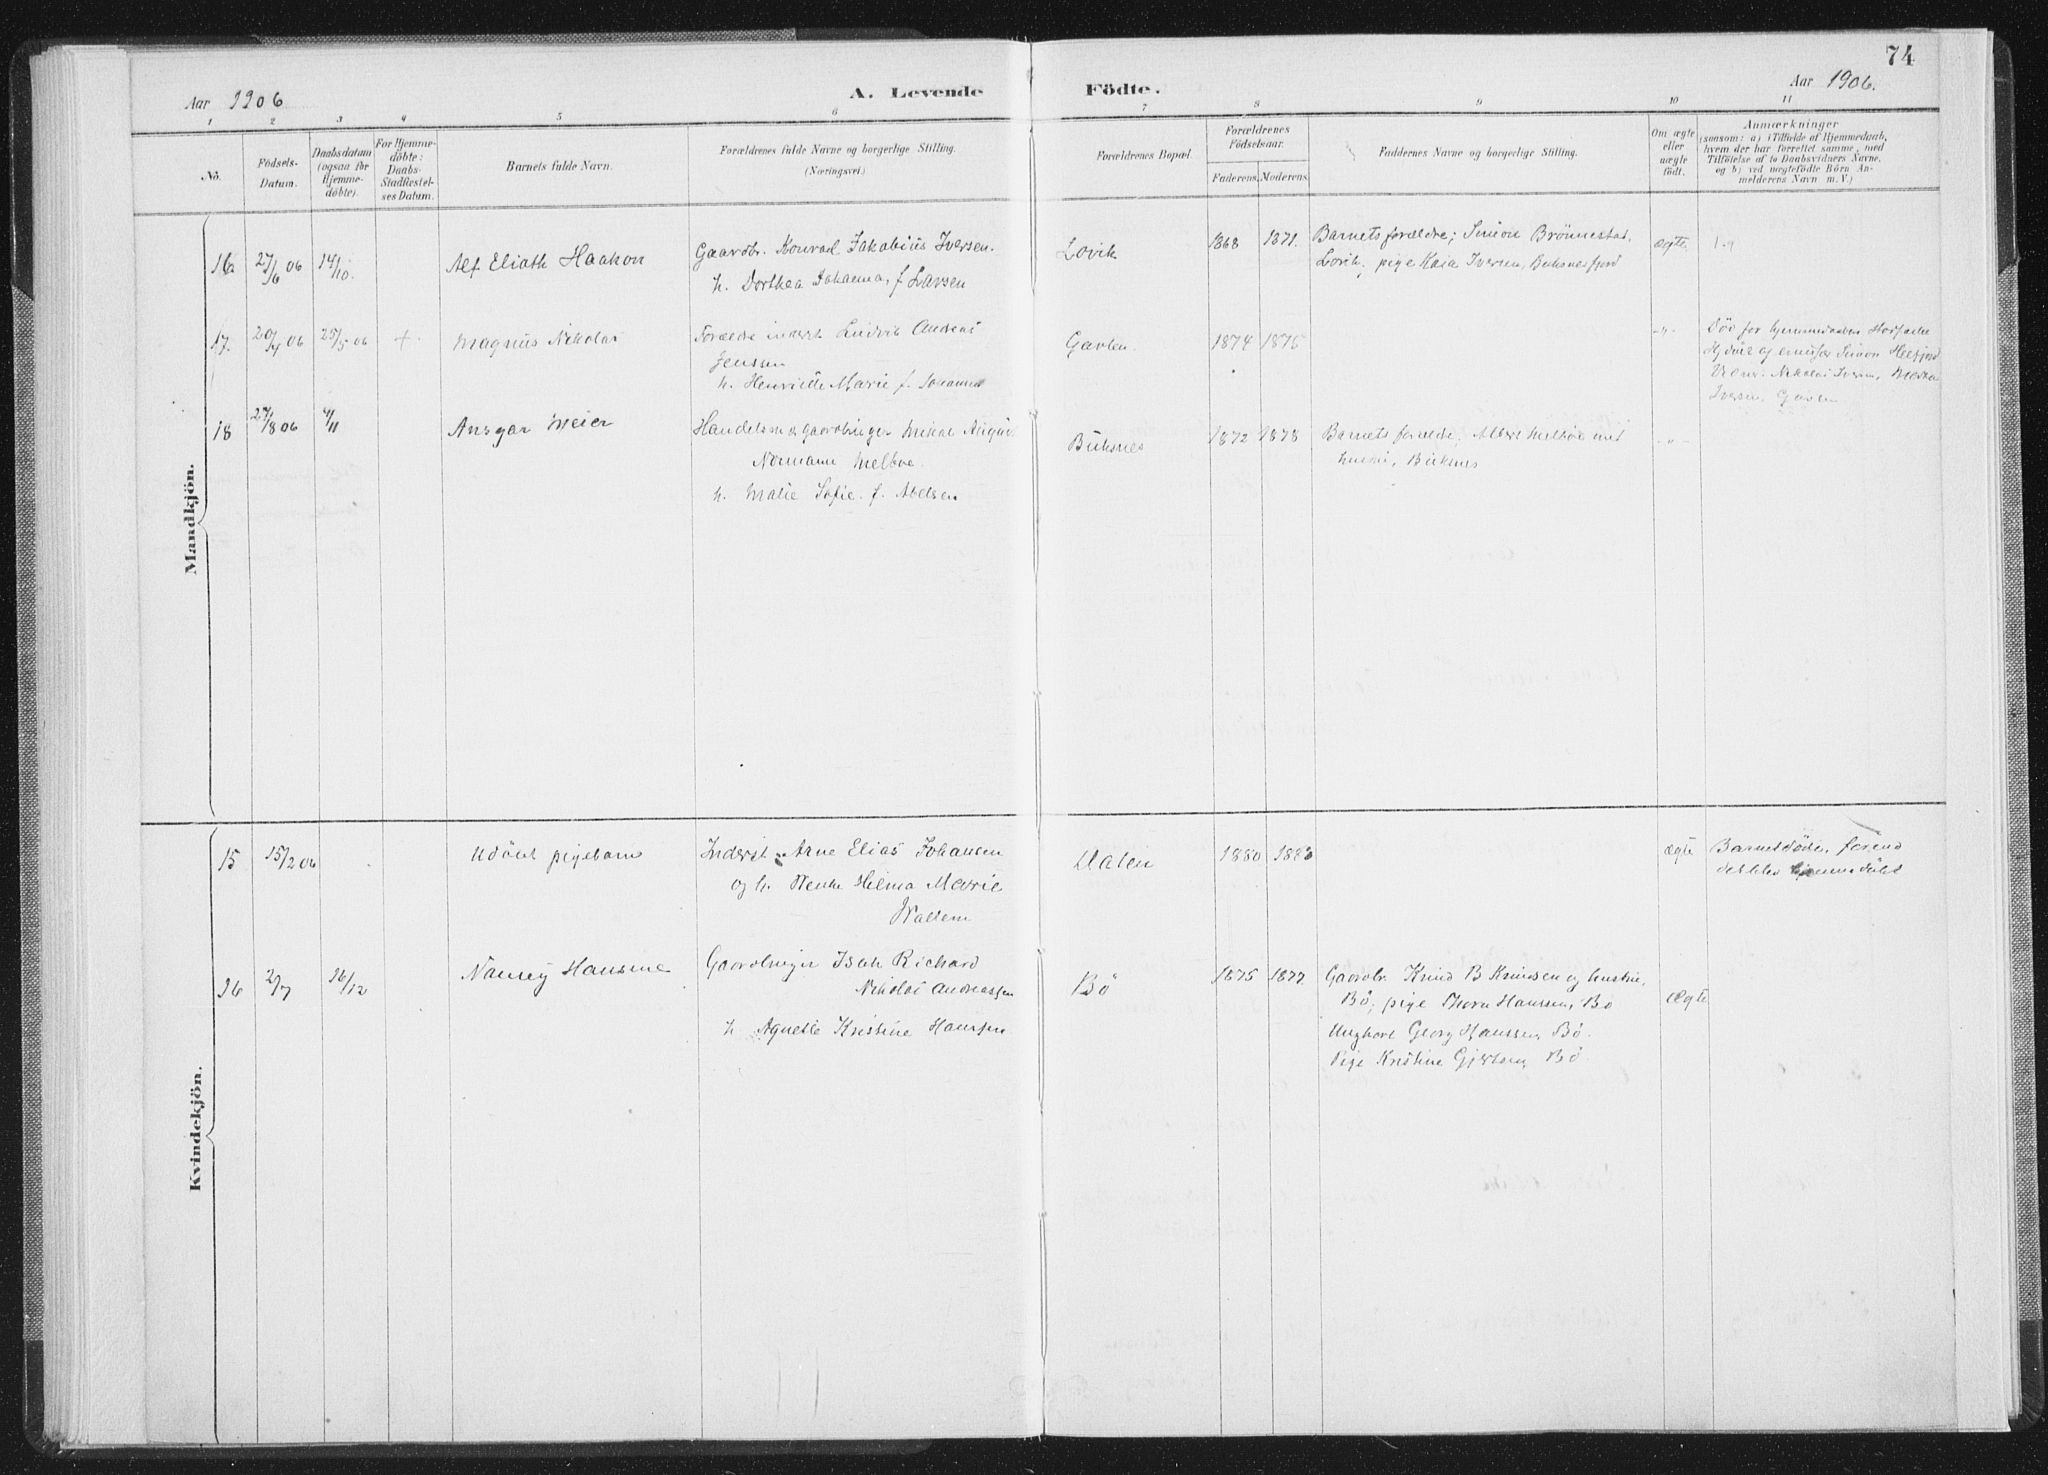 74
Aar 1906
A. Levende Födte.
Aar 1906.
1 2 3 4 5 6 7 8 9 10 11
No.
Födsels-
Datum.
Daabsdatum
(ogsaa for
Hjemme-
döbte).
For Hjemme-
döbte:
Daabs-
Stadfæstel-
ses Datum.
Barnets fulde Navn.
Forældrenes fulde Navne og borgerlige Stilling.
(Næringsvei.)
Forældrenes Bopæl.
Forældrenes
Födselsaar.
Faderens. Moderens.
Faddernes Navne og borgerlige Stilling.
Om ægte
eller
uægte
födt.
Anmærkninger
(saasom: a) i Tilfælde af Hjemmedaab,
hvem der har forrettet samme, med
Tilföielse af to Daabsvidners Navne,
og b) ved uægtefödte Börn An-
melderens Navn m. V.)
Mandkjön.
16 27/6 06 14/10. Alf Eliath Haakon
Gaardbr. Konrad Jakobius Iversen.
h. Dorthea Johanna, f. Larsen
Lovik 1868 1871.
Barnets forældre; Simon Brönnestad,
Lovik, pige Kaia Iversen, Buksnesfjord
ægte.
17. 20/4 06 25/5 06 + Magnus Nikolai
Forældre inderst Ludvik Andreas
Jenssen
h. Henriette Marie f. Johannes
Gavlen 1874 1875
-"-
Död for hjemmedaaben
Iversen, Gavlen
18 27/8 06 4/11 Ansgar Meier
Handelsm & gaardbruger Mikal August
Normann Melbøe.
h. Malie Sofie f. Abelsen
Buksnes 1872 1878
Barnets forældre, Albert Melbøe med
hustru, Buksnes
-"-
Kvindekjön.
15 15/2 06 Udöbt pigebarn
Inderst Arne Elias Johansen
og h. Hilma Marie
Wallem
Dalen 1880 1883
ægte
Barnet döde, forend
det blev hjemmedöbt
16 2/7 16/12 Nancy Hansine
Gaardbruger Isak Richard
Nikolai Andreassen
h. Agnette Kristine Hanssen
Bö 1875 1877.
Gaardbr. Knud B Knudsen og hustru,
Bö, pige Thora Hanssen, Bö
Ungkarl Georg Hanssen, Bö.
Pige Kristine Gjertsen, Bö
Ægte